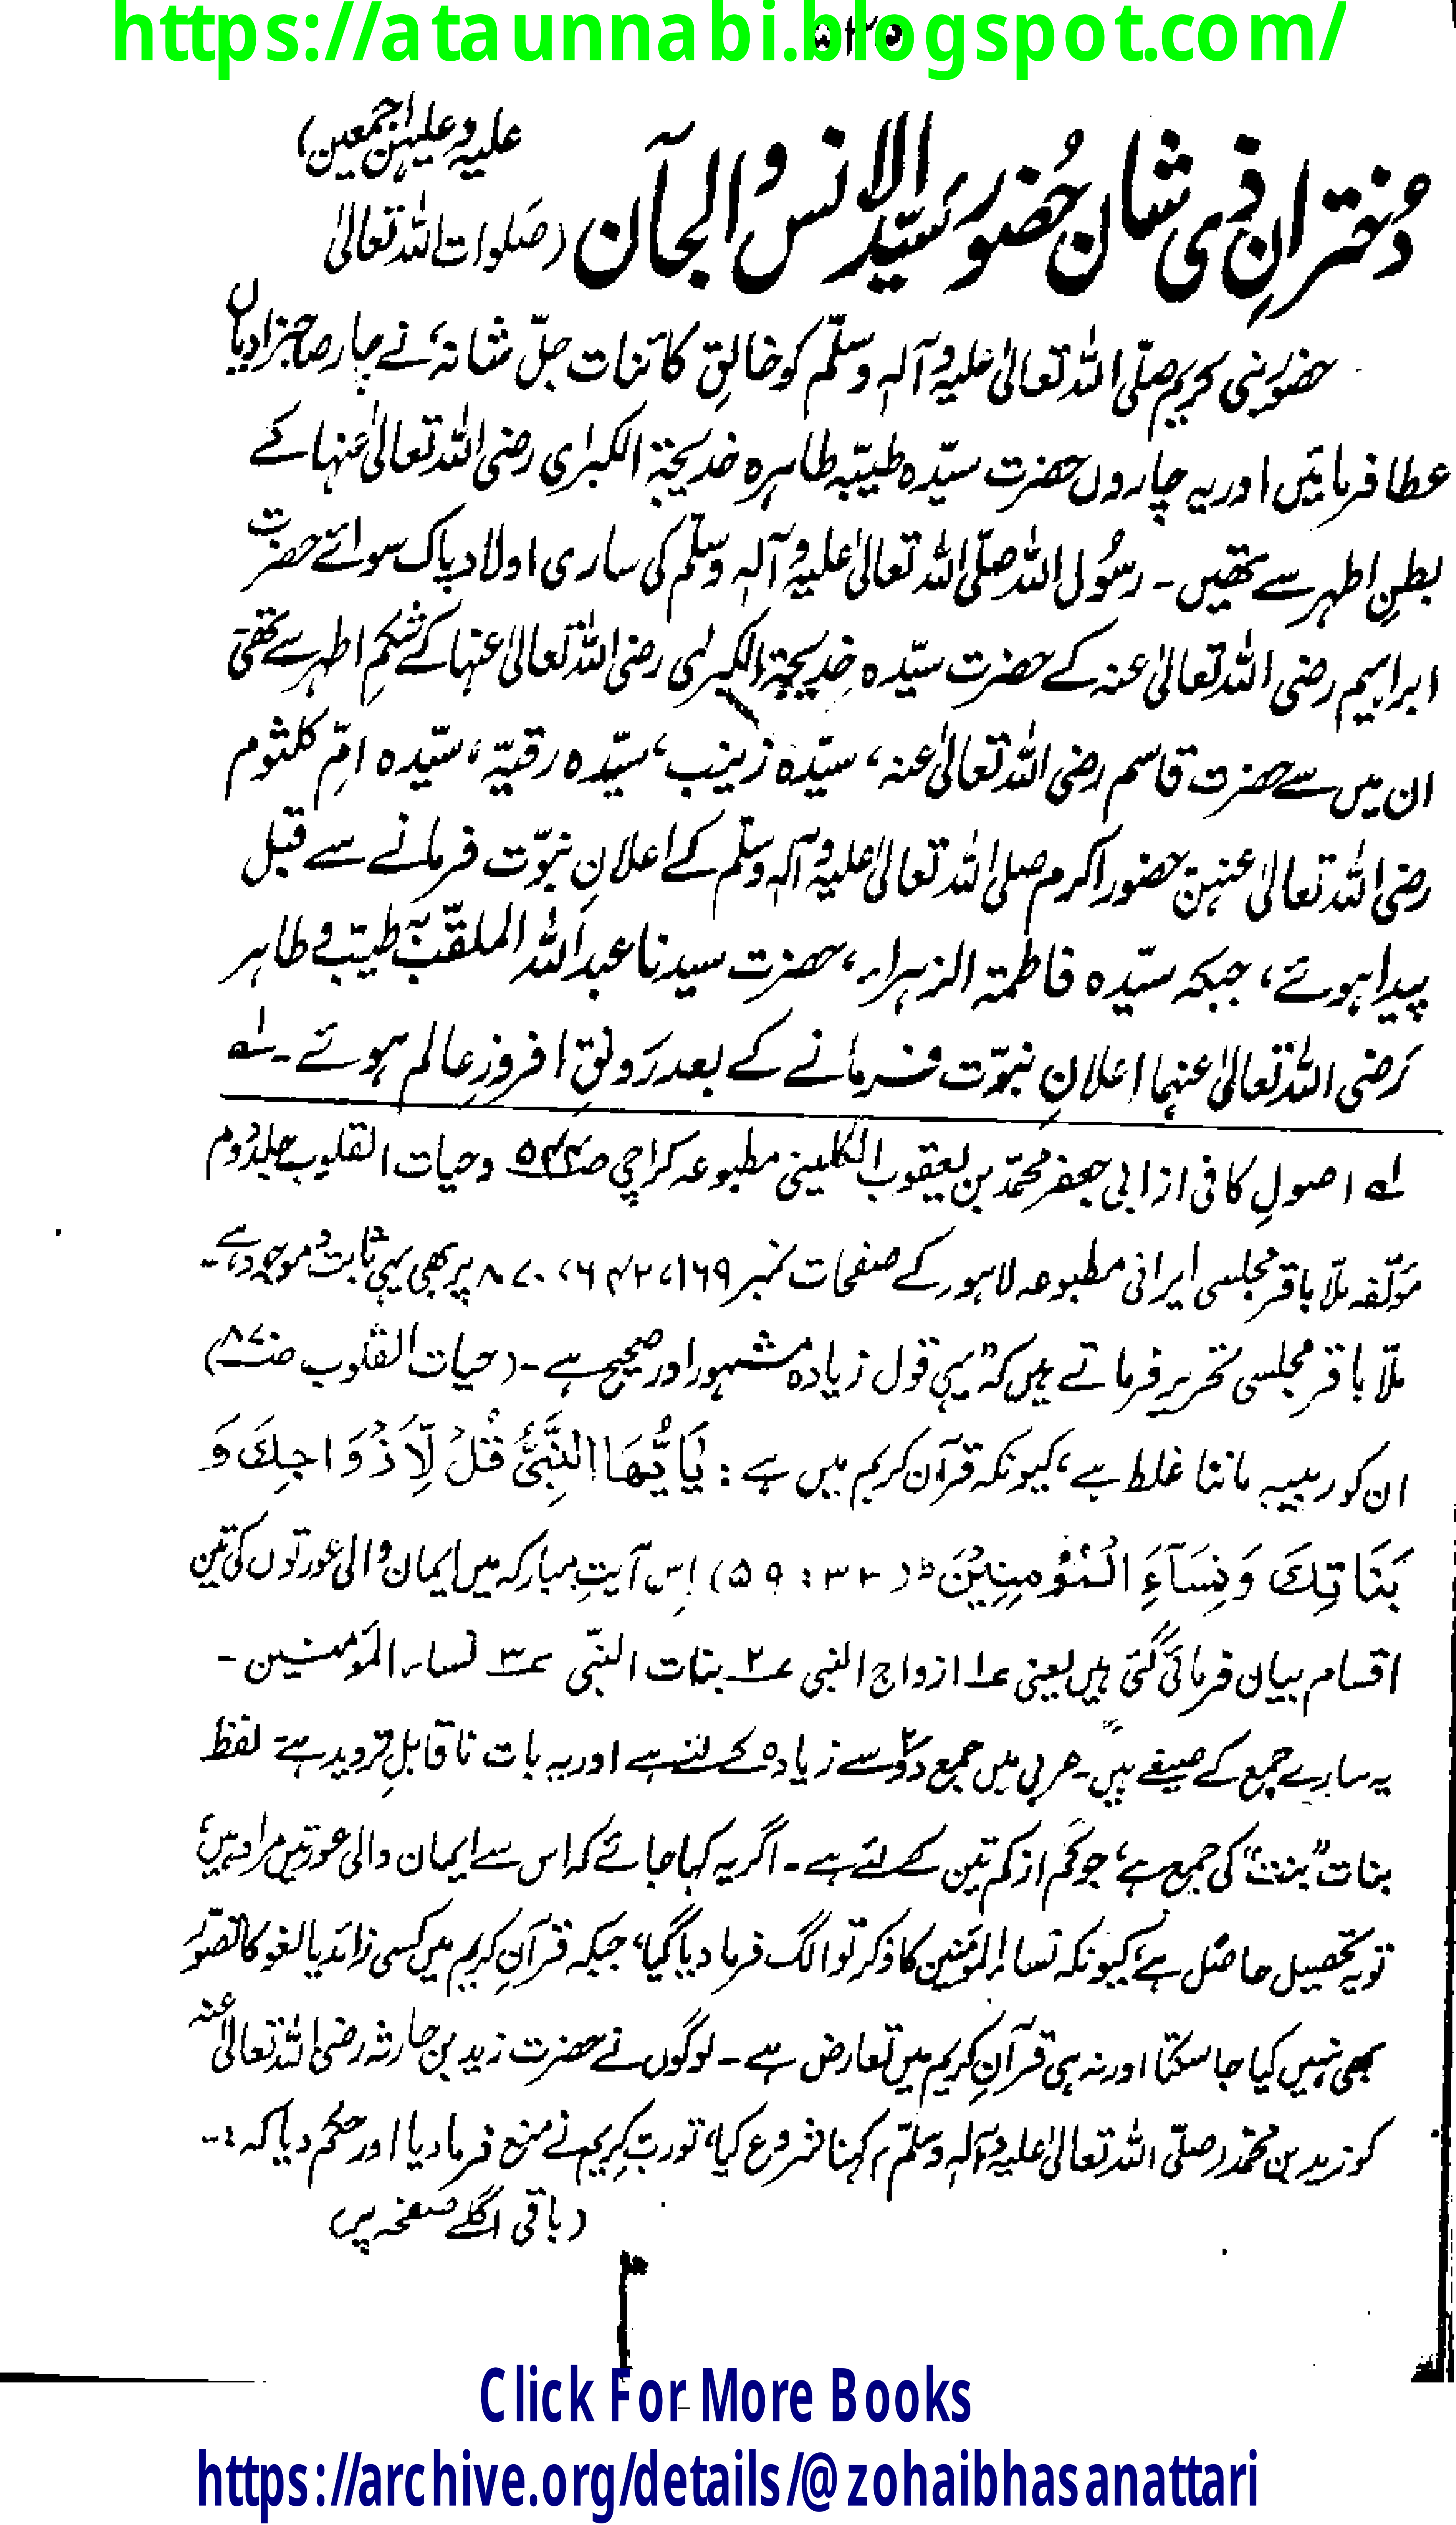 https://ataunnabi.blogspot.com/
دُخترانِ ذی شان حضور سیّد الانس والجآن (صَلوات اللہ تعالیٰ
علیہ وعلیہن اجمعین)
حضور نبی کریم صلّی اللہ تعالیٰ علیہ وآلہٖ وسلّم کو خالقِ کائنات جلّ شانہٗ نے چار صاحبزادیاں
عطا فرمائیں اور یہ چاروں حضرت سیّدہ طیّبہ طاہرہ خدیجۃ الکبرٰی رضی اللہ تعالیٰ عنہا کے
بطنِ اطہر سے تھیں۔ رسُول اللہ صلّی اللہ تعالیٰ علیہ وآلہٖ وسلّم کی ساری اولادِ پاک سوائے حضرت
ابراہیم رضی اللہ تعالیٰ عنہ کے حضرت سیّدہ خدیجۃ الکبرٰی رضی اللہ تعالیٰ عنہا کے شکمِ اطہر سے تھی
ان میں سے حضرت قاسم رضی اللہ تعالیٰ عنہ، سیّدہ زینب، سیّدہ رقیّہ، سیّدہ امِّ کلثوم
رضی اللہ تعالیٰ عنہن حضور اکرم صلی اللہ تعالیٰ علیہ وآلہٖ وسلّم کے اعلانِ نبوّت فرمانے سے قبل
پیدا ہوئے، جبکہ سیّدہ فاطمۃ الزہراء، حضرت سیدنا عبداللہ الملقّب بہ طیّب و طاہر
رَضی اللہ تعالیٰ عنہما اعلانِ نبوّت فرمانے کے بعد رَونقِ افروزِ عالم ہوئے۔ لے
لے اصولِ کافی از ابی جعفر محمّد بن یعقوب الکلینی مطبوعہ کراچی صـ۵۴۴ وحیات القلوب جلد دُوم
مَولّفہ ملّا باقر مجلسی ایرانی مطبوعہ لاہور کے صفحات نمبر ۱۶۹، ۶۴۲، ۸۷۰ پر بھی یہی ثابت و موجود ہے۔
ملّا باقر مجلسی تحریر فرماتے ہیں کہ ”یہی قول زیادہ مشہور اور صحیح ہے۔ (حیات القلوب صـ۸۷۰)
ان کو ربیبہ ماننا غلط ہے، کیونکہ قرآن کریم میں ہے: یٰٓاَیُّهَا النَّبِیُّ قُلْ لِّاَزْوَاجِكَ وَ
بَنَاتِكَ وَنِسَآءِ الْمُؤْمِنِیْنَ ط (۳۳ : ۵۹) اِس آیتِ مبارکہ میں ایمان والی عورتوں کی تین
اقسام بیان فرمائی گئی ہیں یعنی ۱؎ ازواج النبی ۲؎ بنات النبّی ۳؎ نساء المؤمنین۔
یہ سارے جمع کے صیغے ہیں۔ عربی میں جمع دَو۲ سے زیادہ کے لئے ہے اور یہ بات ناقابلِ تردید ہے۔ لفظ
بنات ”بنت“ کی جمع ہے، جو کم از کم تین کے لئے ہے۔ اگر یہ کہا جائے کہ اس سے ایمان والی عورتیں مراد ہیں،
تو یہ تحصیل حاصل ہے، کیونکہ نساء المؤمنین کا ذکر تو الگ فرما دیا گیا، جبکہ قرآنِ کریم میں کسی زائد یا لغو کا تصوّر
بھی نہیں کیا جا سکتا اور نہ ہی قرآنِ کریم میں تعارض ہے۔ لوگوں نے حضرت زید بن حارثہ رضی اللہ تعالیٰ عنہ
کو زید بن محمّد (صلّی اللہ تعالیٰ علیہ وآلہٖ وسلّم) کہنا شروع کیا، تو ربّ کریم نے منع فرما دیا اور حکم دیا کہ:۔
(باقی اگلے صفحہ پر)
Click For More Books
https://archive.org/details/@zohaibhasanattari